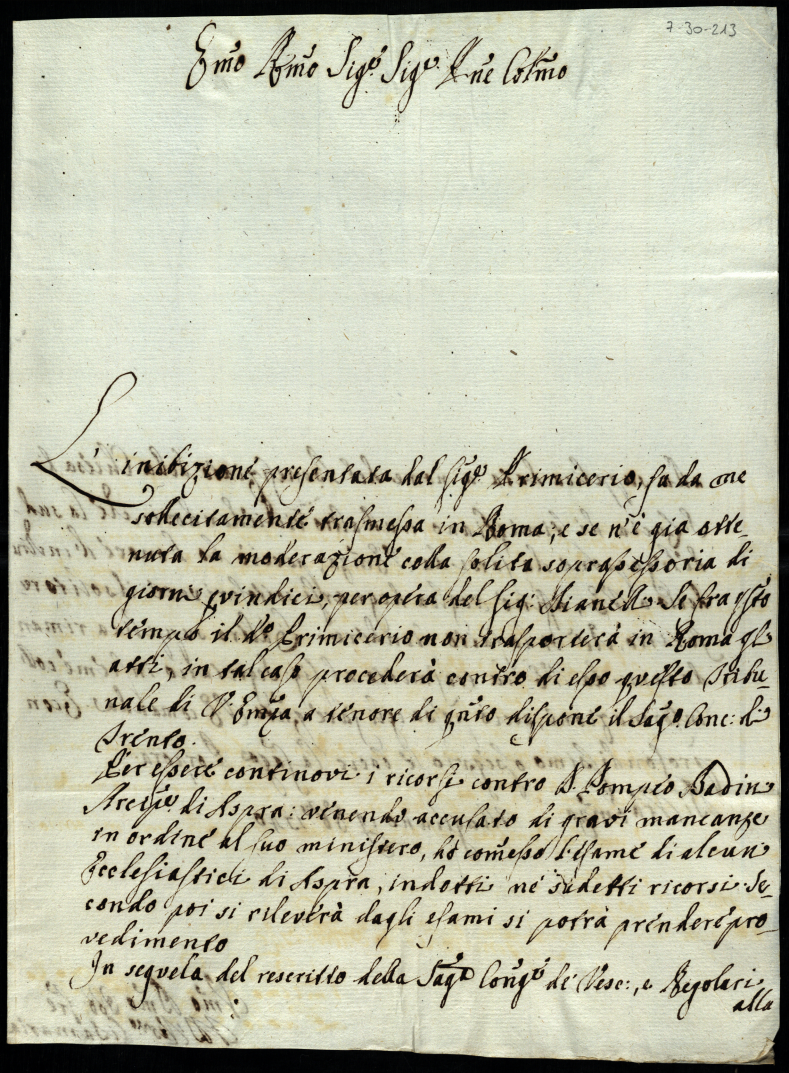 7-30-213
Em̃o Rm̃o Sig.r Sig.r Pñe Colm̃o
L'inibizione presentata dal Sig.r Primicerio, fu da me
sollecitamente trasmessa in Roma; e se n'è gia otte-
nuta la moderazione colla solita soprasessoria di
giorni quindici, per opera del Sig: Se fra q̃sto
tempo il d.o Primicerio non trasporterà in Roma gl'
atti, in tal caso procederà contro di esso questo Tribu-
nale di V. Em̃za, a tenore di q̃nto dispone il Sag.o Conc: di
Trento.
Per essere continovi i ricorsi contro D. Pompeo Badini
Arcip.e di Aspra: venendo accusato di gravi mancanze
in ordine al suo ministero, hò com̃esso l'esame di alcuni
Ecclesiastici di Aspra, indotti ne' sudetti ricorsi. Se-
condo poi si rileverà dagli esami si potrà prendere pro-
vedimento
In sequela del rescritto della Sag.a Cong.e de' Vesc:, e Regolari
alla